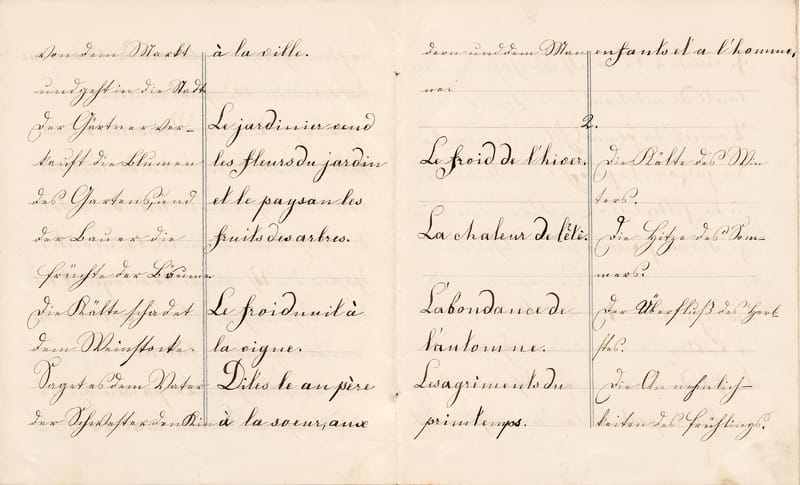 von dem Markt à la ville.
und geht in die Stadt
Der Gärtner ver- Le jardinier vend
kauft die Blumen les fleurs du jardin
des Gartens, und et le paysan les
der Bauer die fruits des arbres.
früchte der Bäume
Die Kälte schadet Le froid nuit à
dem Weinstocke. la vigne.
Saget es dem Vater Dites le au père
der Schwester den Kin à la soeur, aux
dern und dem Man enfants et a l'homme,
ne.
2.
Le froid de l'hiver. Die Kälte des Win
ters.
La chaleur de l'été. Die Hitze des Som-
mers.
L'abondance de Der Überfluß des Herb
l'automne. stes.
Les agriments du Die Annehmlich-
printemps. keiten des frühlings.